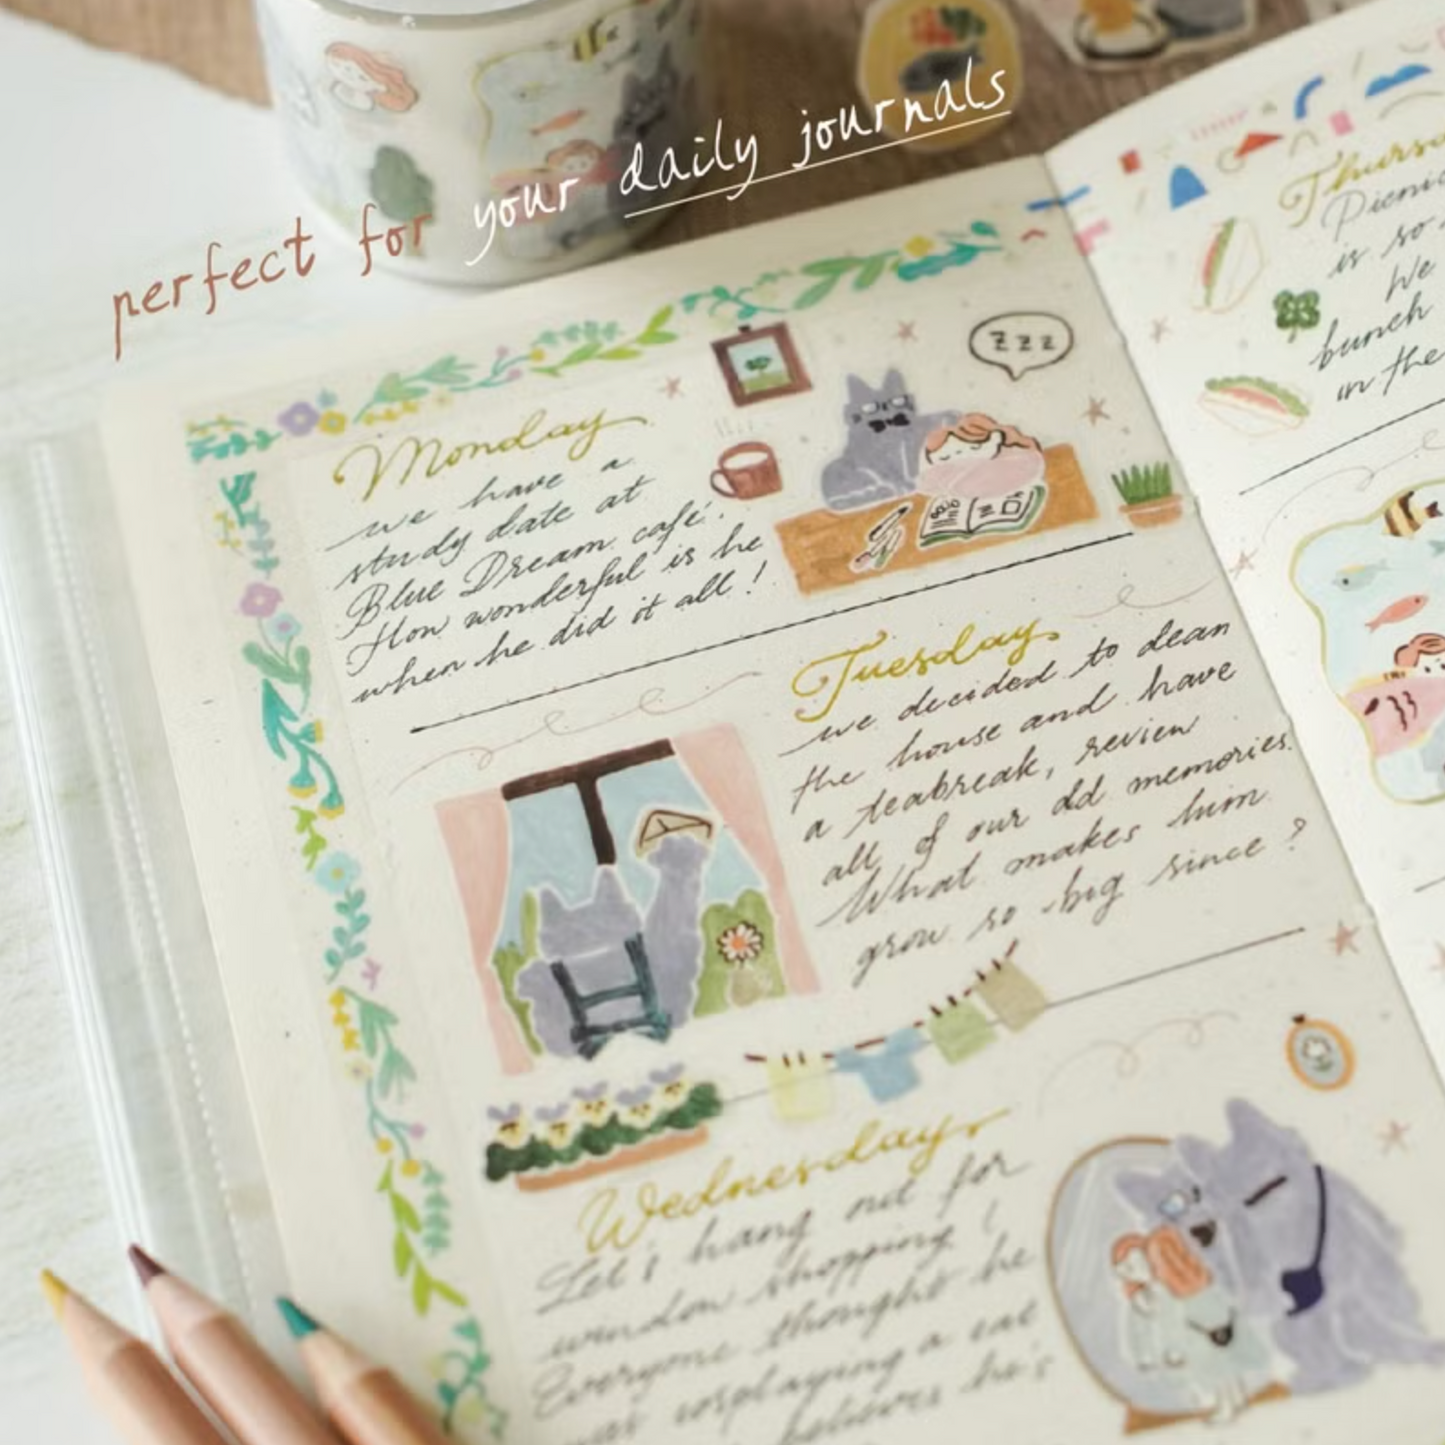 perfect for your daily journals
zzz
Monday
we have a
study date at
Blue Dream café.
How wonderful is he
when he did it all!
Tuesday
we decided to clean
the house and have
a teabreak, review
all of our old memories.
What makes him
grow so big since?
Wednesday
Let's hang out for
window shopping!
Everyone thought he
was cosplaying a cat
believes he's
Picnic
is so
We
bunch
in the